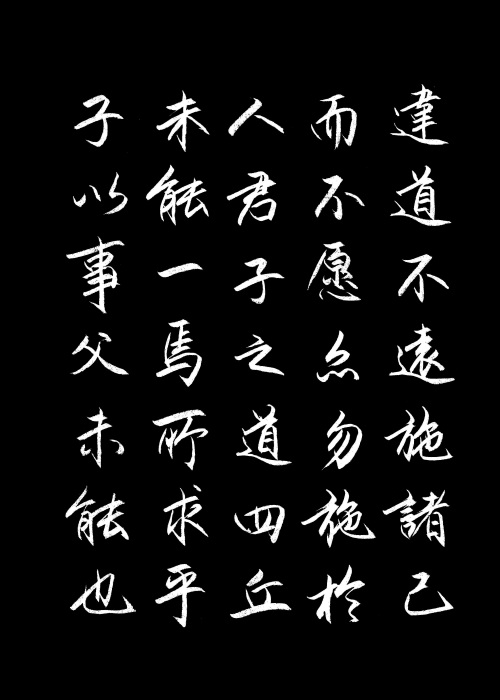 違道不遠施諸己
而不愿亦勿施於
人君子之道四丘
未能一焉所求乎
子以事父未能也